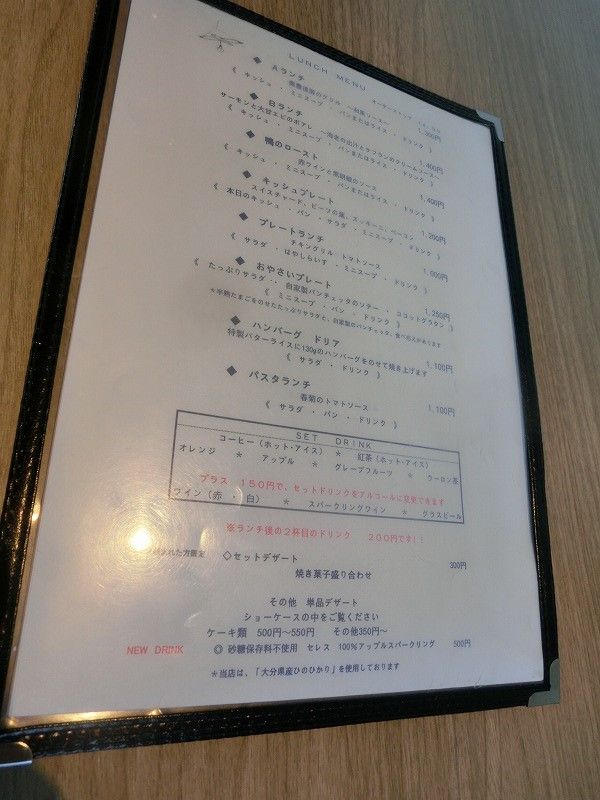 LUNCH MENU
◆ Aランチ
1,300円
《 キッシュ ・ ミニスープ ・ パンまたはライス ・ ドリンク 》
◆ Bランチ
サーモンと大甘エビのポアレ ～海老の出汁とサフランのクリームソース～ 1,400円
《 キッシュ ・ ミニスープ ・ パンまたはライス ・ ドリンク 》
◆ 鴨のロースト
赤ワインと黒胡椒のソース 1,400円
《 キッシュ ・ ミニスープ ・ パンまたはライス ・ ドリンク 》
◆ キッシュプレート
スイスチャード、ビーツの葉、ズッキーニ、ベーコン 1,200円
《 本日のキッシュ ・ パン ・ サラダ ・ ミニスープ ・ ドリンク 》
◆ プレートランチ
チキングリル トマトソース
《 サラダ ・ はやしらいす ・ ミニスープ ・ ドリンク 》
◆ おやさいプレート
《 たっぷりサラダ ・ 自家製パンチェッタのソテー ・ ココットグラタン 》 1,250円
《 ミニスープ ・ パン ・ ドリンク 》
*半熟たまごをのせたたっぷりサラダと、自家製のパンチェッタ、食べ応えがあります
◆ ハンバーグ ドリア 1,100円
特製バターライスに130gのハンバーグをのせて焼き上げます
《 サラダ ・ ドリンク 》
◆ パスタランチ
春菊のトマトソース 1,100円
《 サラダ ・ パン ・ ドリンク 》
SET DRINK
コーヒー(ホット・アイス) * 紅茶(ホット・アイス)
オレンジ * アップル * グレープフルーツ * ウーロン茶
プラス 150円で、セットドリンクをアルコールに変更できます
ワイン(赤 ・ 白) * スパークリングワイン * グラスビール
※ランチ後の2杯目のドリンク 200円です!!
された方限定 ◇セットデザート 300円
焼き菓子盛り合わせ
その他 単品デザート
ショーケースの中をご覧ください
ケーキ類 500円～550円 その他350円～
NEW DRINK ◎ 砂糖保存料不使用 セレス 100%アップルスパークリング 500円
*当店は、「大分県産ひのひかり」を使用しております